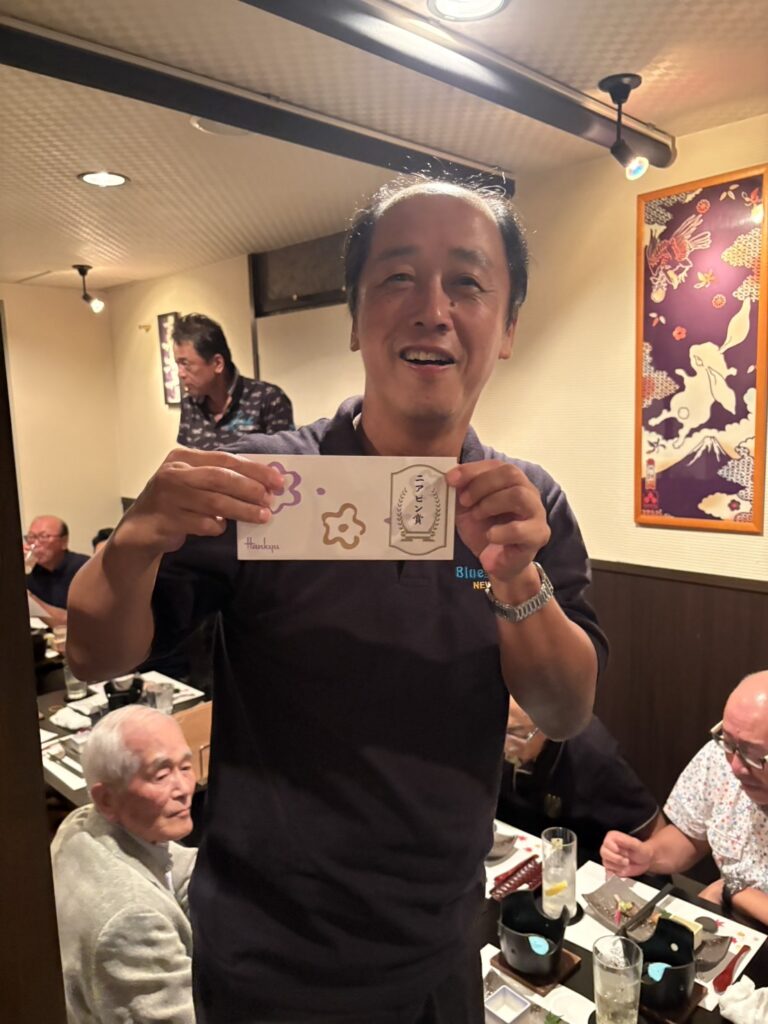 ニアピン賞
Hankyu
Blue
NEW